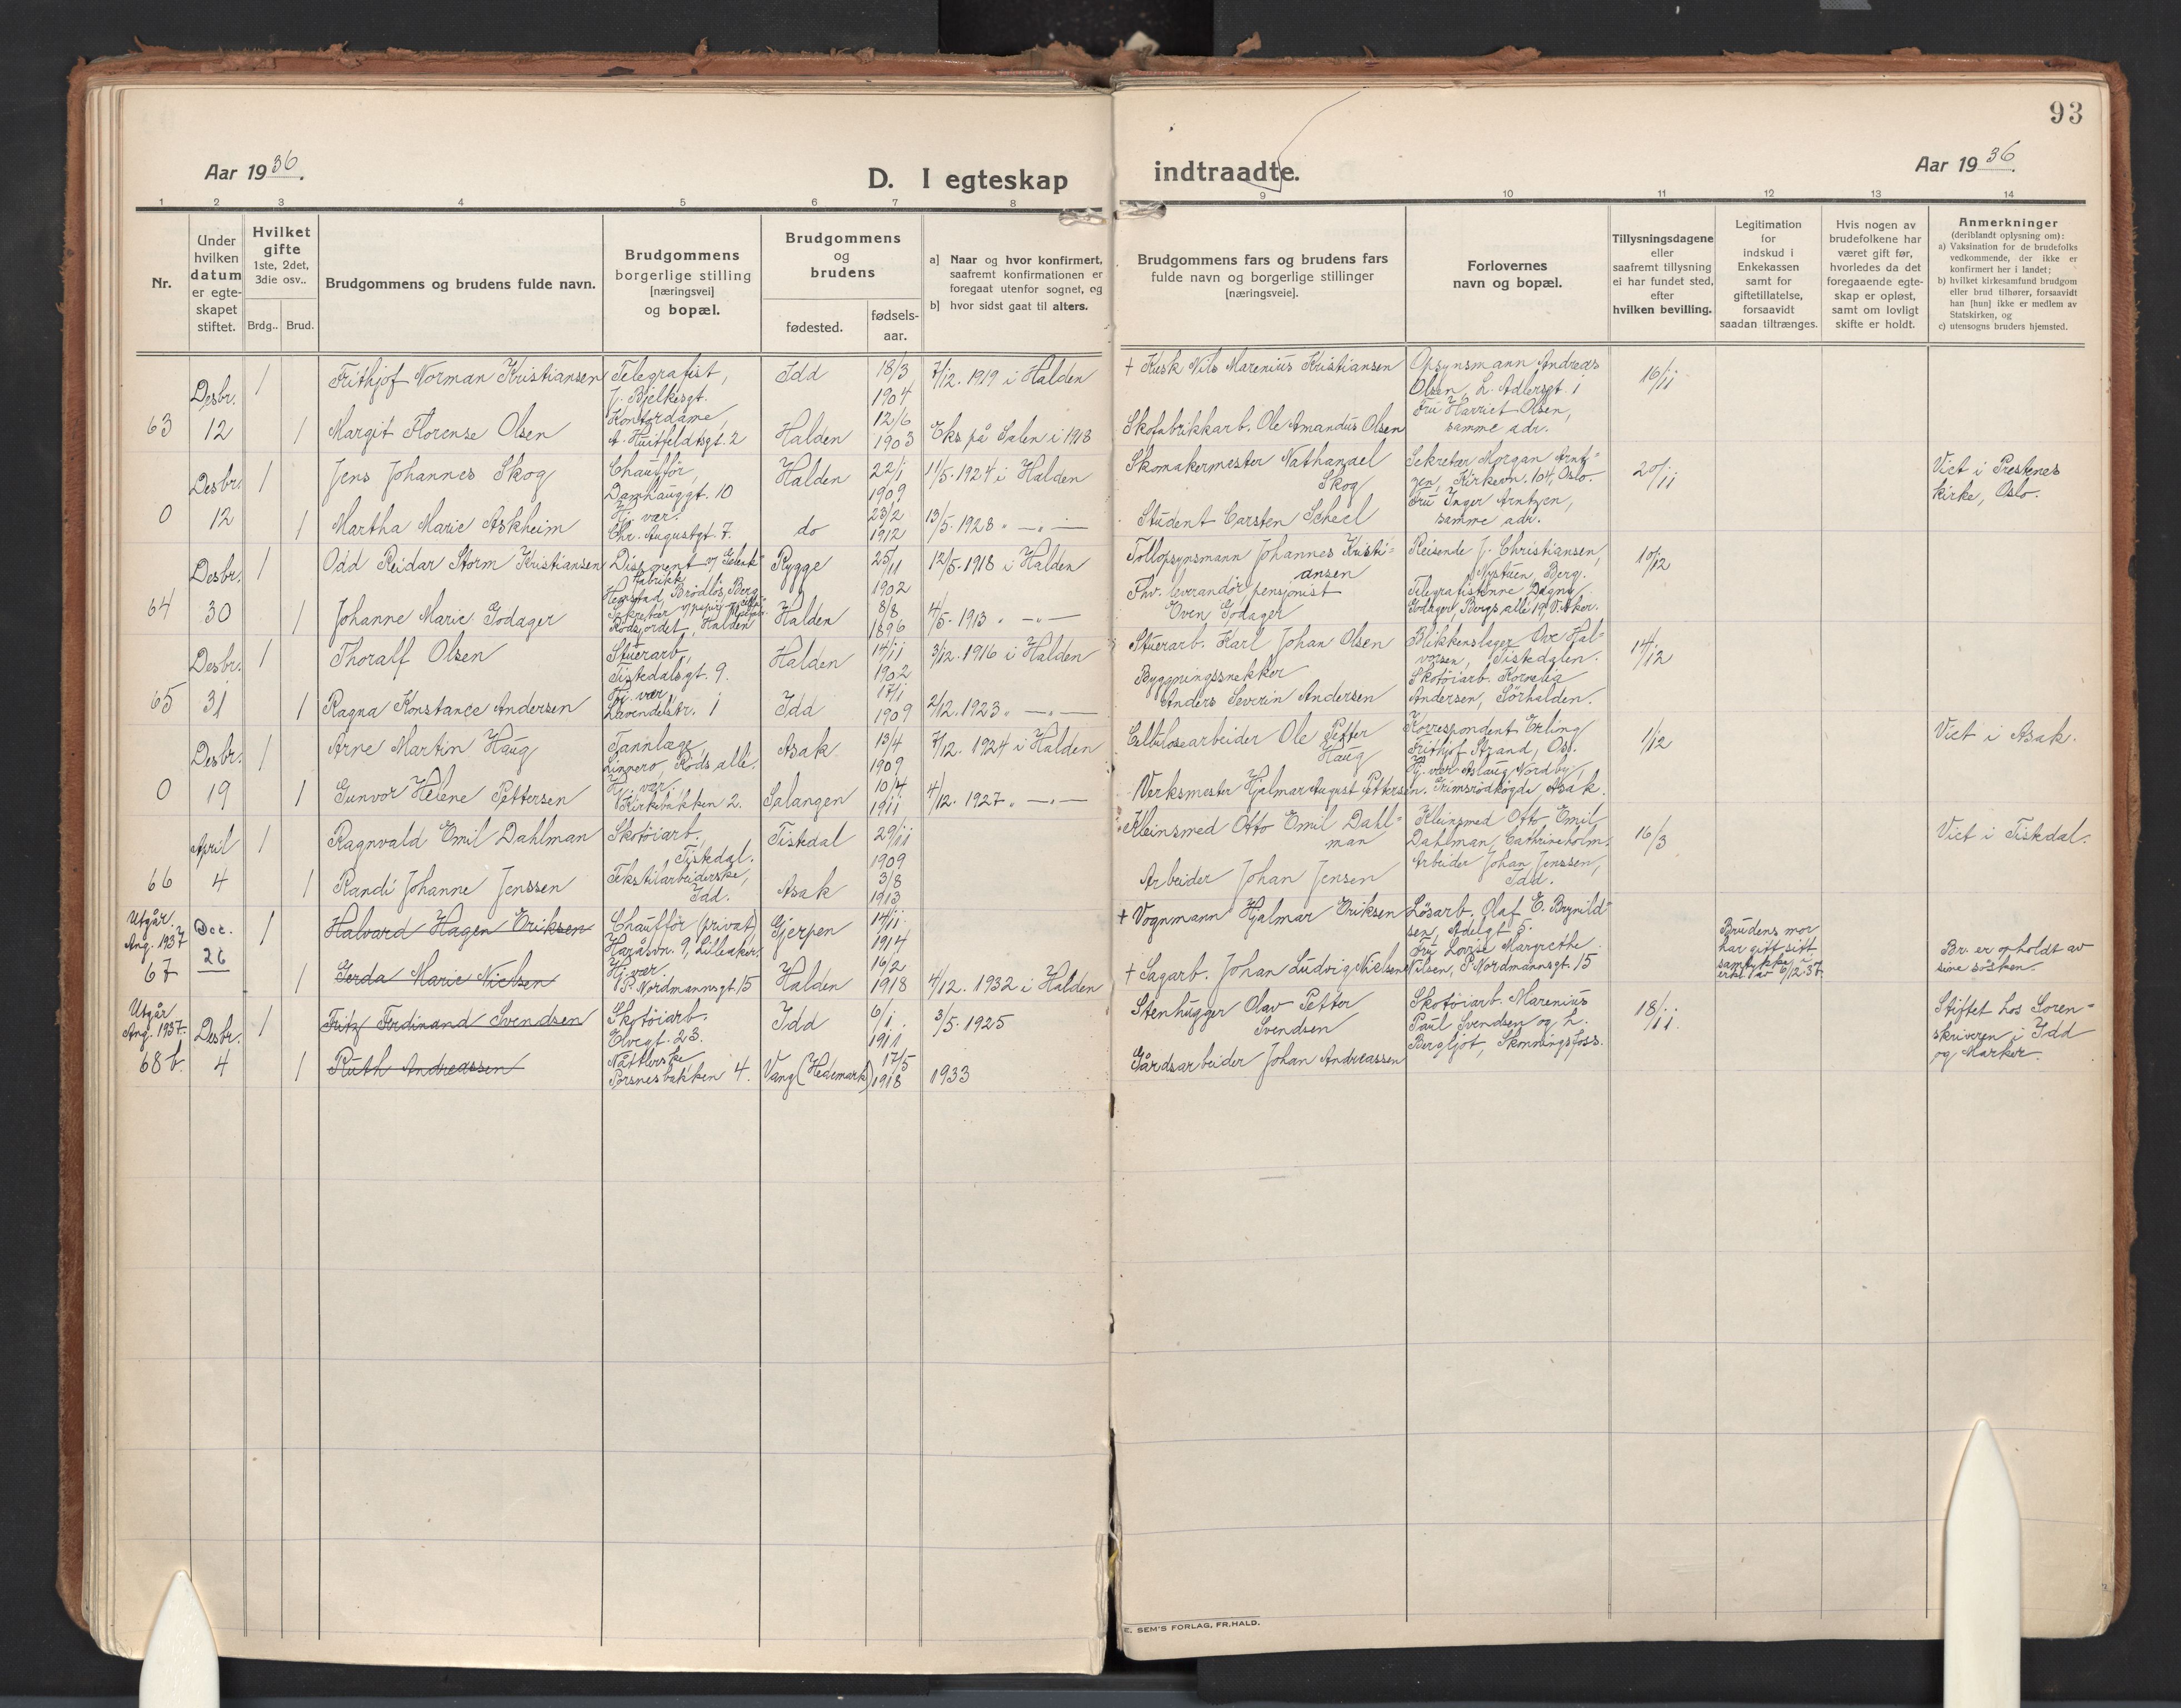 93
Aar 1936.
D. I egteskap indtraadte.
Aar 1936.
1 2 3 4 5 6 7 8 9 10 11 12 13 14
Nr.
Under hvilken datum er egteskapet stiftet.
Hvilket gifte 1ste, 2det, 3die osv..
Brdg.. Brud.
Brudgommens og brudens fulde navn.
Brudgommens borgerlige stilling [næringsvei] og bopæl.
Brudgommens og brudens
fødested.
fødselsaar.
a] Naar og hvor konfirmert, saafremt konfirmationen er foregaat utenfor sognet, og
b] hvor sidst gaat til alters.
Brudgommens fars og brudens fars fulde navn og borgerlige stillinger [næringsveie].
Forlovernes navn og bopæl.
Tillysningsdagene eller saafremt tillysning ei har fundet sted, efter hvilken bevilling.
Legitimation for indskud i Enkekassen samt for giftetillatelse, forsaavidt saadan tiltrænges.
Hvis nogen av brudefolkene har været gift før, hvorledes da det foregaaende egteskap er opløst, samt om lovligt skifte er holdt.
Anmerkninger (deriblandt oplysning om):
a) Vaksination for de brudefolks vedkommende, der ikke er konfirmert her i landet;
b) hvilket kirkesamfund brudgom eller brud tilhører, forsaavidt han [hun] ikke er medlem av Statskirken, og
c) utensogns bruders hjemsted.
63 Desbr. 12
1 Frithjof Norman Kristiansen
Telegrafist, J. Bjelkesgt.
Idd 18/3 1904
7/12. 1919 i Halden
† Kusk Nils Marenius Kristiansen
Opsynsmann Andreas Olsen, L. Adlersgt. 1
16/11
1 Margit Florense Olsen
Kontordame, A. Huitfeldtsgt. 2
Halden 12/6 1903
Eks på Salen i 1918
Skofabrikkarb. Ole Amandus Olsen
Fru Harriet Olsen, samme adr.
0 Desbr. 12
1 Jens Johannes Skog
Chauffør, Damhauggt. 10
Halden 22/1 1909
11/5. 1924 i Halden
Skomakermester Nathanael Skog
Sekretær Morgan Arntzen, Kirkevn. 104, Oslo.
20/11
Viet i Prestenes kirke, Oslo.
1 Martha Marie Askheim
Hj. vær. Chr. Augustgt. 7.
do 23/2 1912
13/5. 1928 " — " —
Student Carsten Scheel
Fru Inger Arntzen, samme adr.
64 Desbr. 30
1 Odd Reidar Storm Kristiansen
Disponent v/ fabrikk Brödlös, Berg
Rygge 25/11 1902
12/5. 1918 i Halden
Tollopsynsmann Johannes Kristiansen
Reisende J. Christiansen, Nystuen, Berg.
10/12
1 Johanne Marie Godager
Sekretær Rödsjordet, Halden
Halden 8/8 1896
4/5. 1913 " — " —
Fhv. leverandör pensjonist Even Godager
Telegrafistinne Dagny Godager, Bergs alle 19, V. Aker.
65 Desbr. 31
1 Thoralf Olsen
Stuerarb, Tistedalsgt. 9.
Halden 14/11 1902
3/12. 1916 i Halden
Stuerarb. Karl Johan Olsen
Blikkenslager Ove Halvorsen, Tistedalen.
14/12
1 Ragna Konstance Andersen
Hj. vær, Lavendelstr. 1
Idd 17/1 1909
2/12. 1923 " — " —
Byggningssnekker Anders Severin Andersen
Skotöiarb. Kornelia Andersen, Sörhalden.
0 Desbr. 19
1 Arne Martin Haug
Tannlæge, Röds alle.
Asak 13/4 1909
7/12. 1924 i Halden
Cellulosearbeider Ole Petter Haug
Korrespondent Erling Frithjof Strand, Os.
1/12
Viet i Asak.
1 Gunvor Helene Pettersen
Hj. vær, V. Kirkebakken 2.
Salangen 10/4 1911
4/12. 1927 " — " —
Verksmester Hjalmar August Pettersen.
Hj. vær Aslaug Nordby, Grimsrödhögda, Asak.
66 April 4
1 Ragnvald Emil Dahlman
Skotöiarb. Tistedal.
Tistedal 29/11 1909
Kleinsmed Otto Emil Dahlman
Kleinsmed Otto Emil Dahlman, Cathrineholm.
16/3
Viet i Tistedal.
1 Randi Johanne Jenssen
Tekstilarbeiderske, Idd.
Asak 3/8 1913
Arbeider Johan Jensen
Arbeider Johan Jenssen, Idd.
Utgår. Ang. 1937
67 Dec. 26
1 Halvard Hagen Eriksen
Chauffør (privat) Haråsvn. 9, Lilleaker.
Gjerpen 14/11. 1914
† Vognmann Hjalmar Eriksen
Lösarb. Olaf E. Brynildsen, Adelgt 8.
Brudens mor har gitt sitt samtykke i erkl. av 6/12-37.
Br. er opholdt av sine sösken.
1 Gerda Marie Nielsen
Hj. vær. P. Nordmannsgt. 15
Halden 16/2 1918
4/12. 1932 i Halden
† Sagarb. Johan Ludvig Nielsen
Fru Lovise Margrethe Nilsen, P. Nordmannsgt. 15
Utgår Ang. 1937.
68 b. Desbr. 4
1 Fritz Ferdinand Svendsen
Skotöiarb. Elvegt. 23.
Idd 6/1 1911
3/5. 1925
Stenhugger Olav Petter Svendsen
Skotöiarb. Marenius Paul Svendsen og h. Bergljot, Skonningsfoss.
18/11.
Stiftet hos Sorenskriveren i Idd og Marker.
1 Ruth Andreassen
Nåtlerske, Porsnesbakken 4.
Vang (Hedemark) 17/5 1918
1933
Gårdsarbeider Johan Andreassen
E. SEM'S FORLAG, FR.HALD.